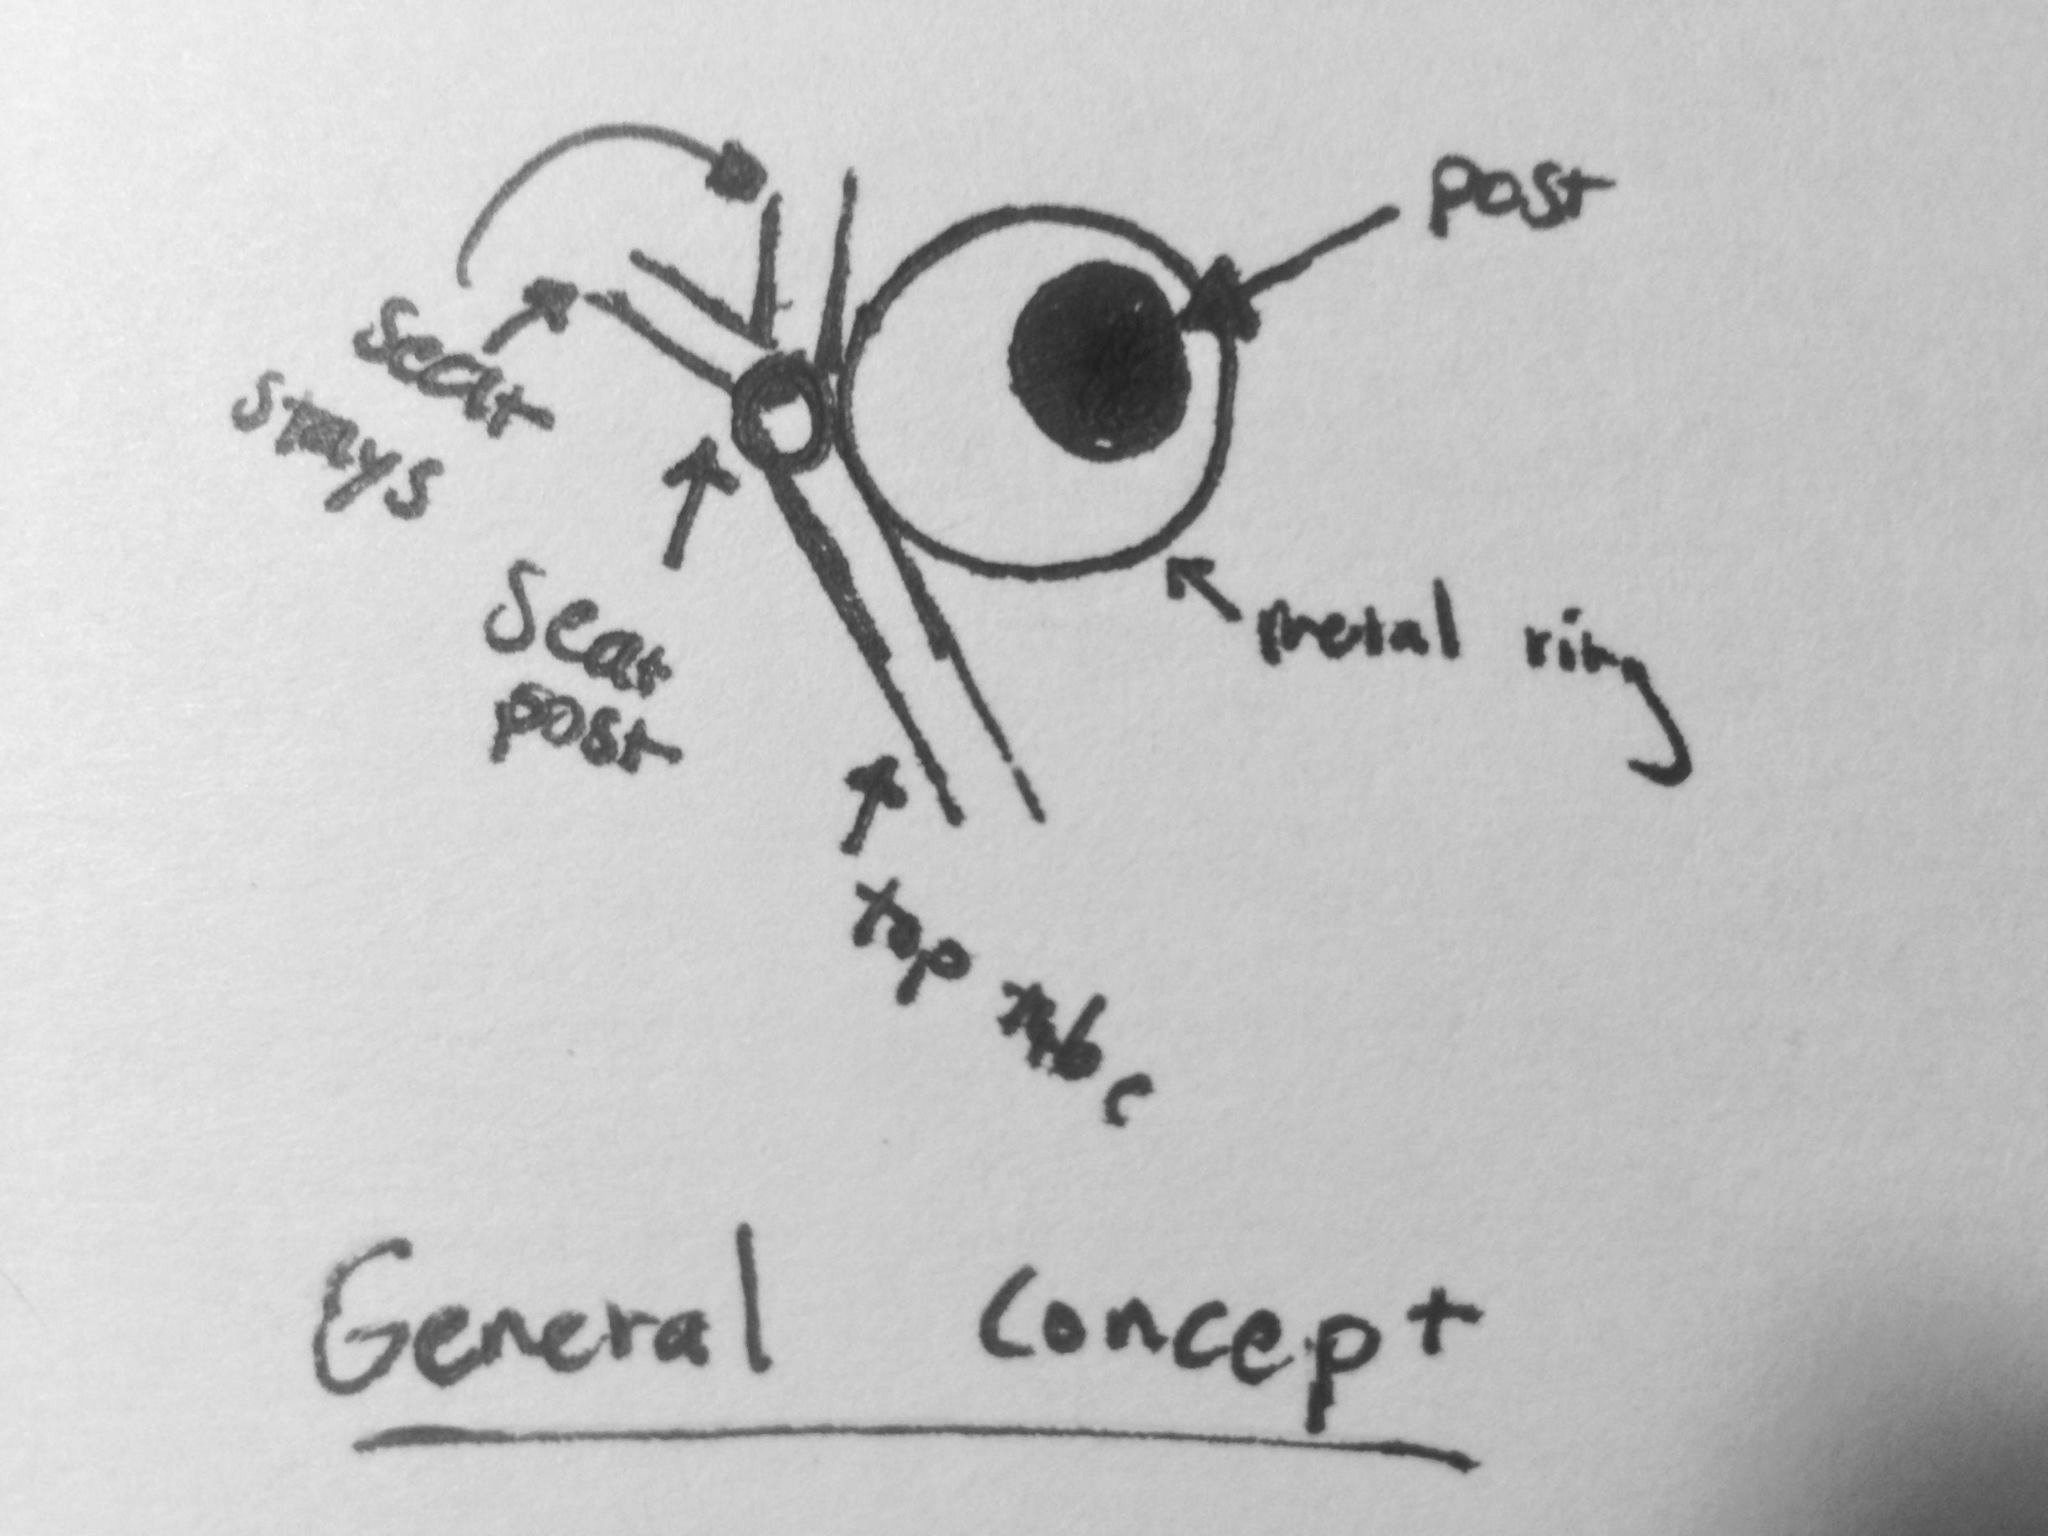 post
seat
stays
seat
post
metal ring
top tube
General Concept